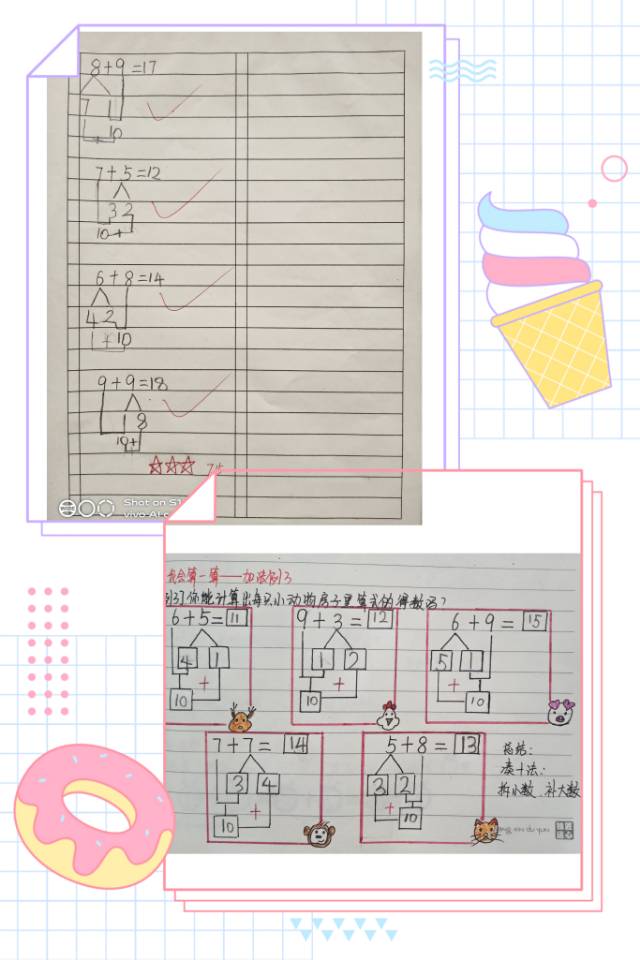 8+9=17
7 1
+ 10
7+5=12
3 2
10+
6+8=14
4 2
+ 10
9+9=18
1 8
10+
Shot on
vivo AI
我会算一算——加法例3
例3]你能计算出每只小动物房子里算式的得数吗?
6+5=11 9+3=12 6+9=15
4 1 1 2 5 1
+ + +
10 10 10
7+7=14 5+8=13 总结:
凑十法:
3 4 3 2 拆小数 补大数
+ +
10 10